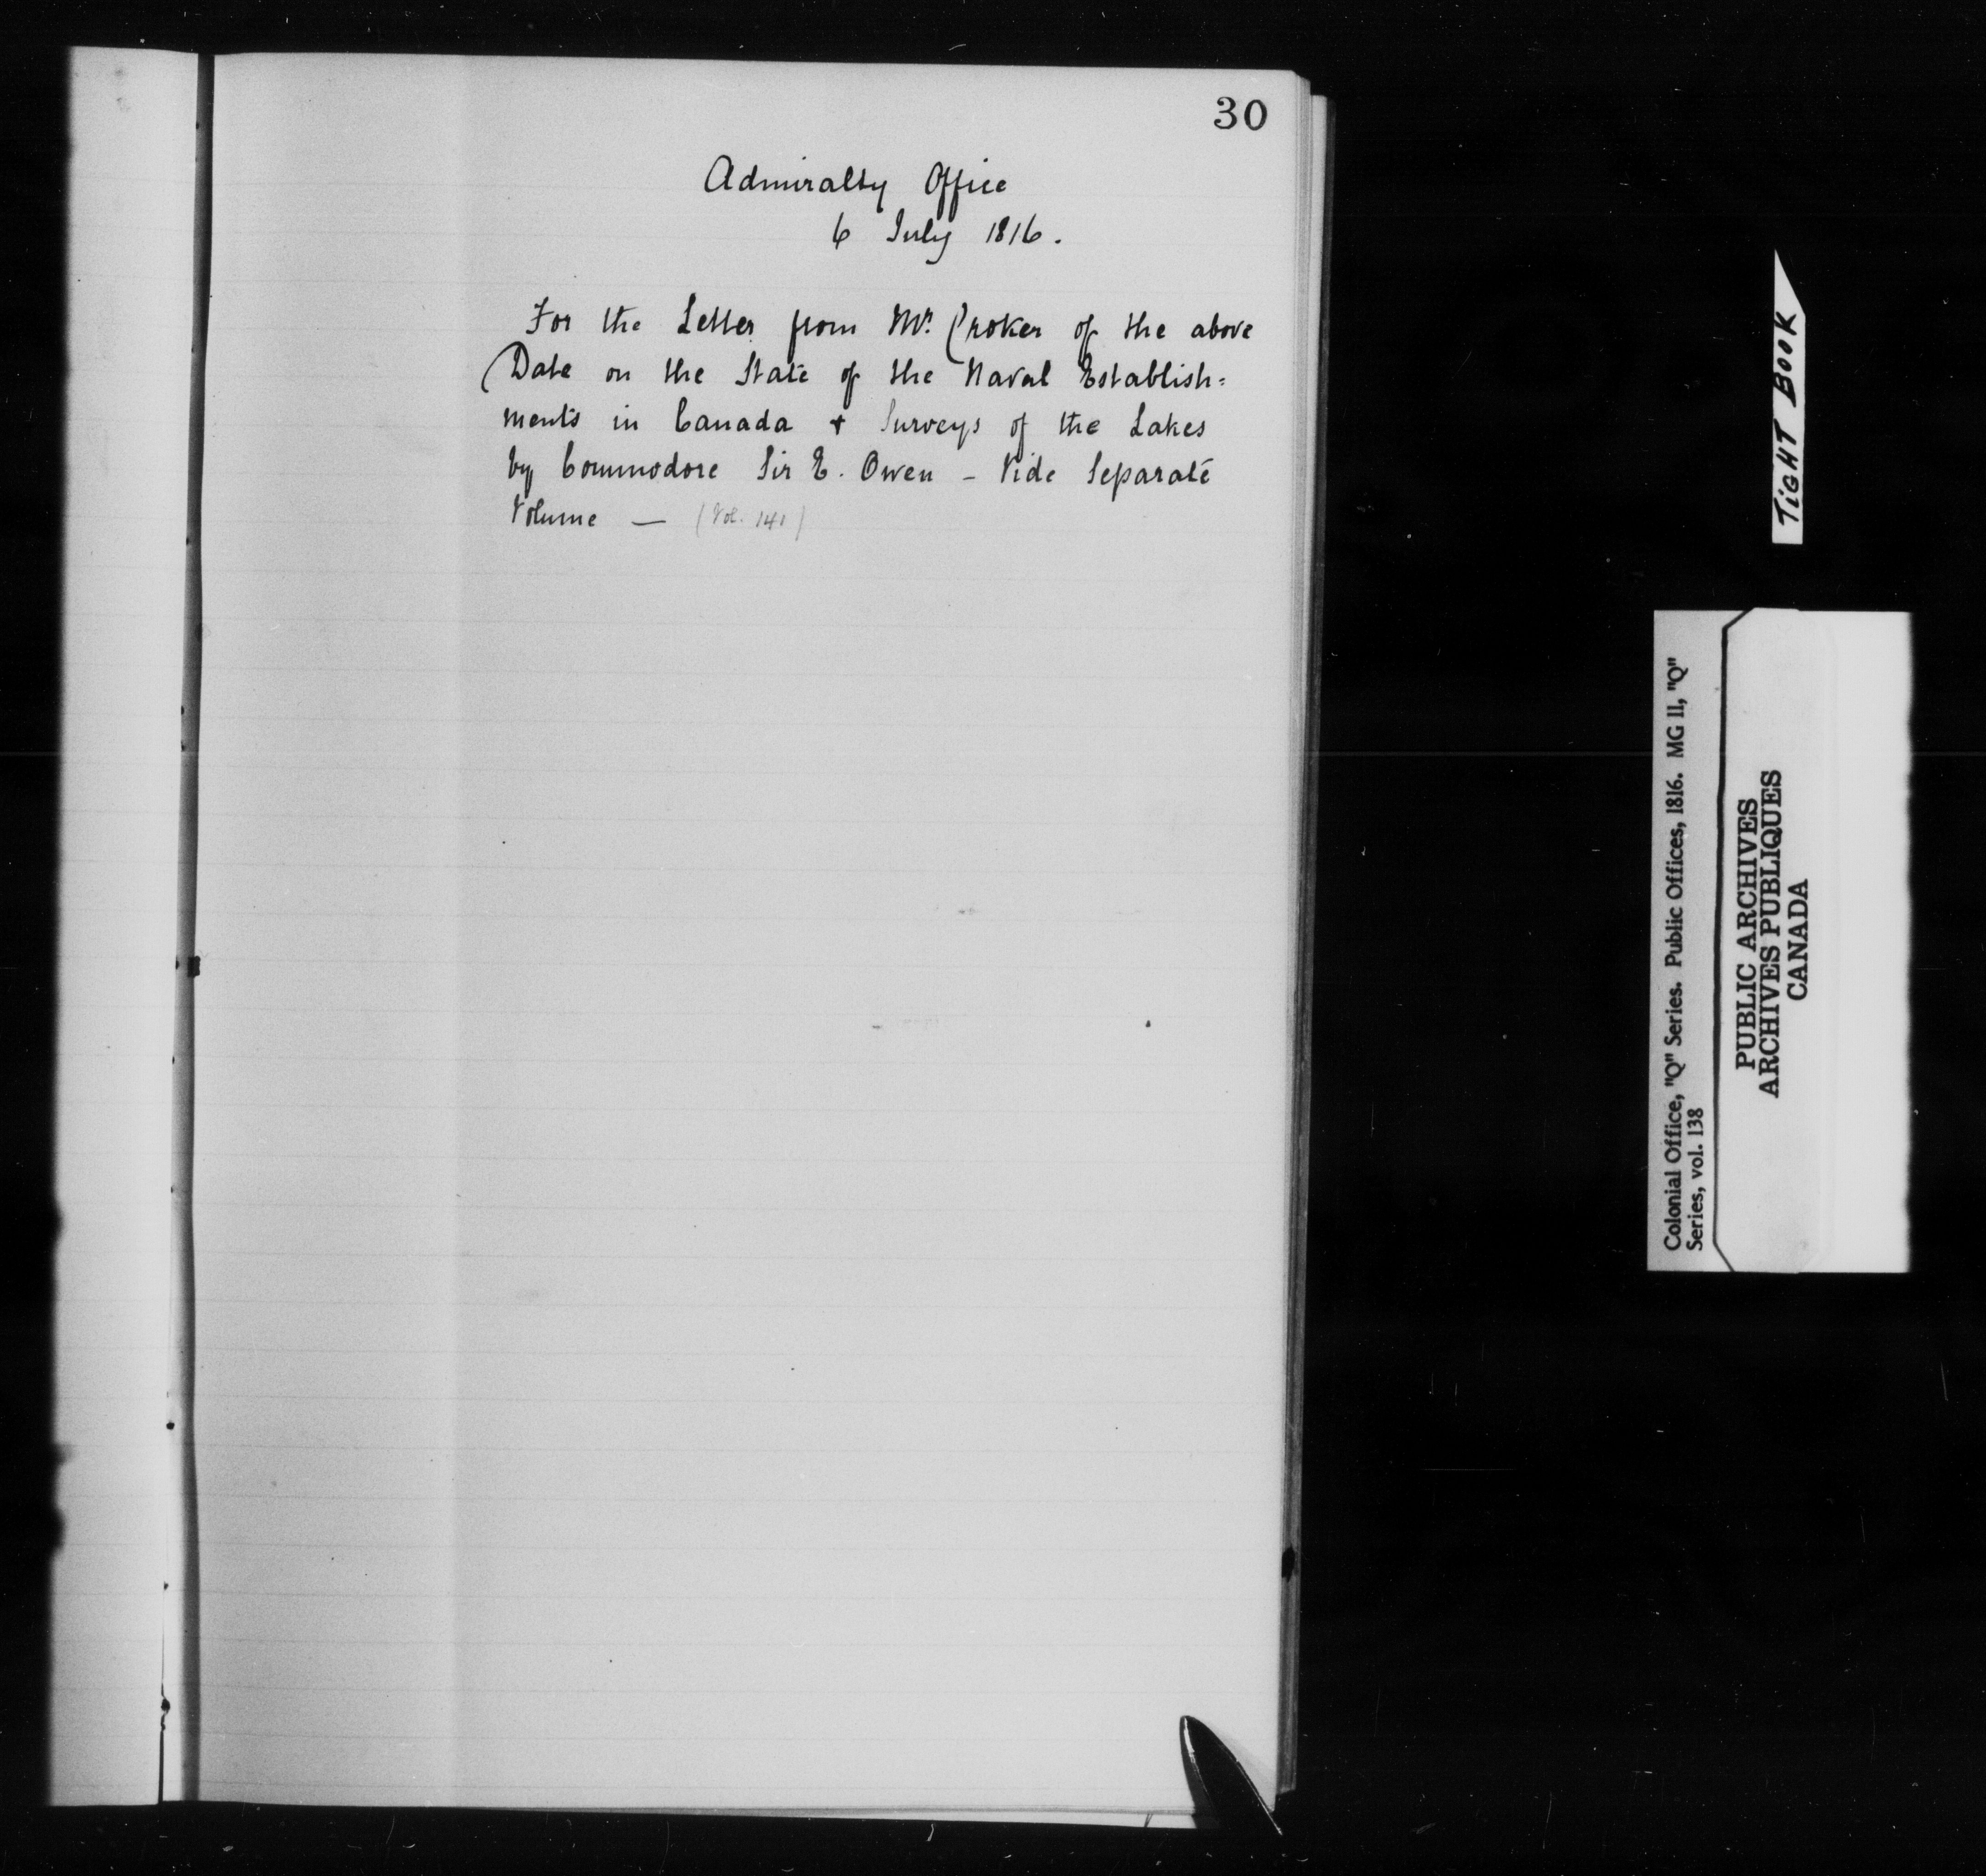 30
Admiralty Office
6 July 1816.
For the Letter from Mr. Croker of the above
Date on the State of the Naval Establish=
ments in Canada & Surveys of the Lakes
by Commodore Sir E. Owen - Vide Separate
Volume — (Vol. 141)
TIGHT BOOK
Colonial Office, "Q" Series. Public Offices, 1816. MG 11, "Q"
Series, vol. 138
PUBLIC ARCHIVES
ARCHIVES PUBLIQUES
CANADA